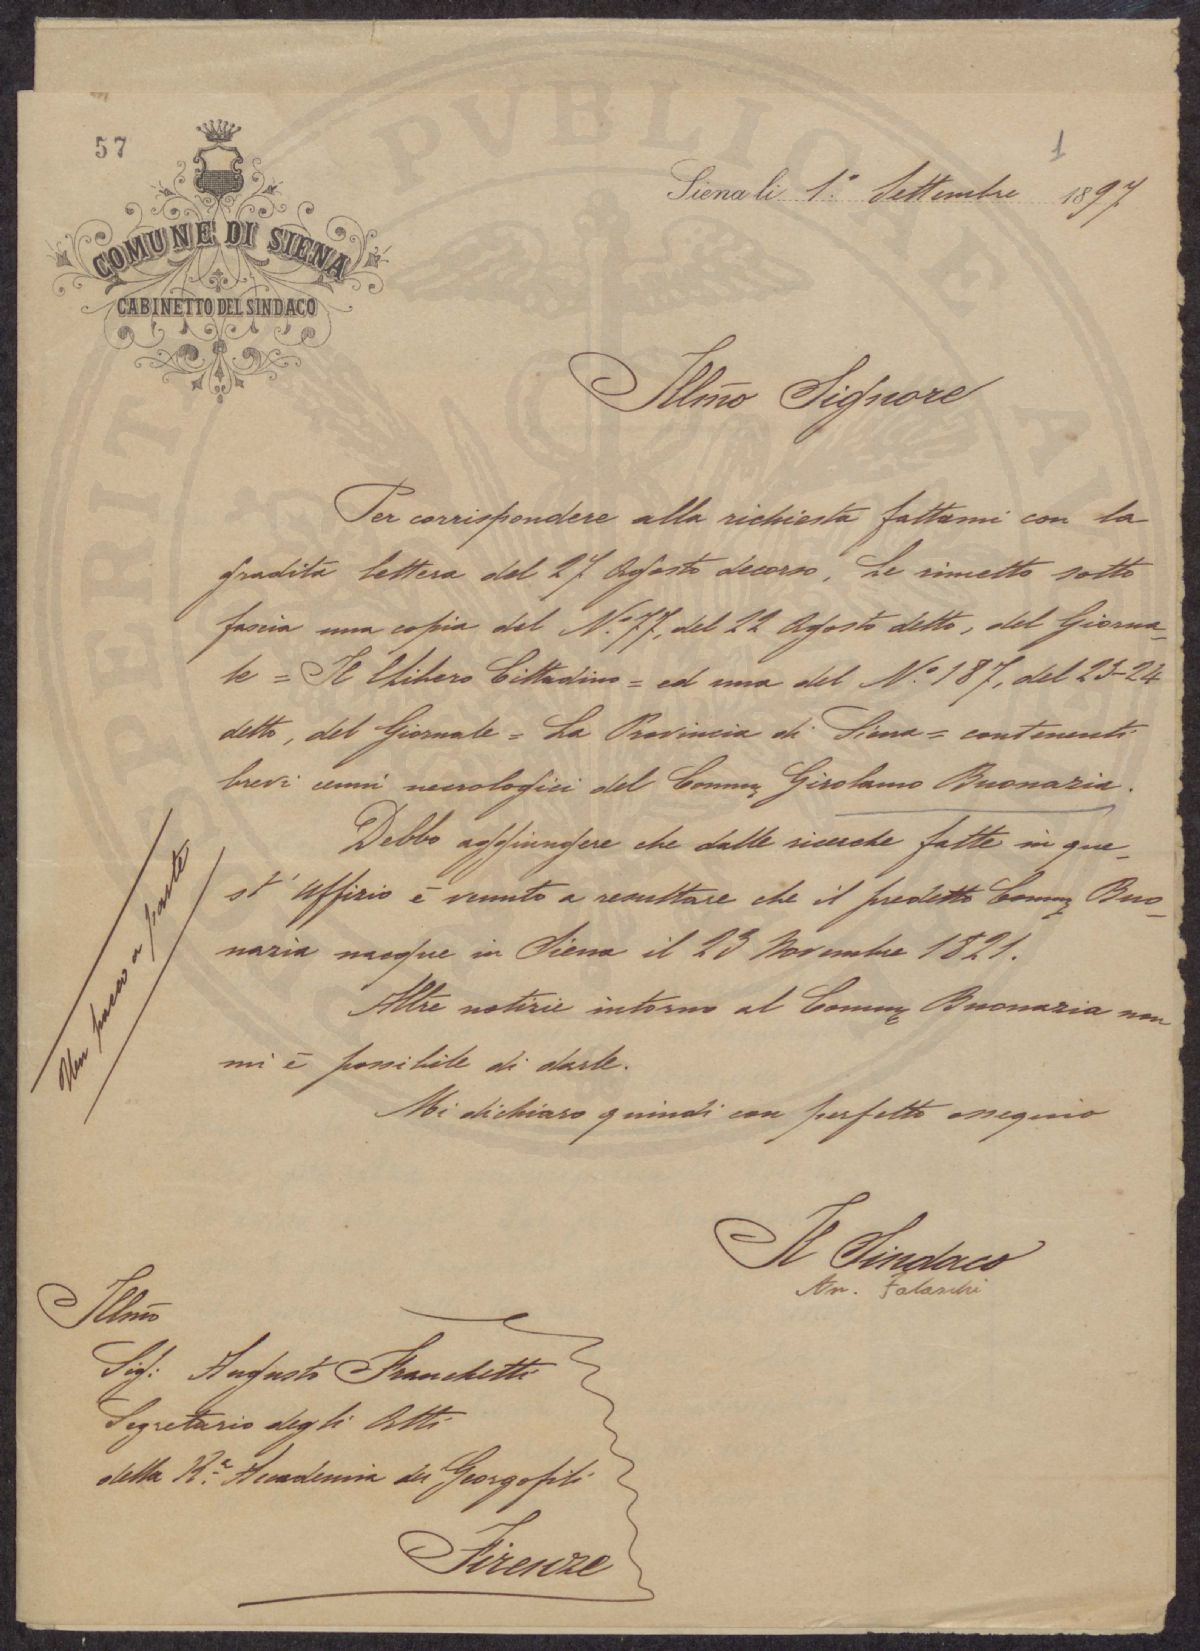 57
1
COMUNE DI SIENA
GABINETTO DEL SINDACO
Siena li 1.° Settembre 1897
Illmo Signore
Per corrispondere alla richiesta fattami con la
gradita lettera del 27 Agosto decorso, Le rimetto sotto
fascia una copia del N.° 77, del 22 Agosto detto, del Giorna-
le = Il Libero Cittadino = ed una del N.° 187, del 23-24
detto, del Giornale = La Provincia di Siena = contenenti
brevi cenni necrologici del Comm Girolamo Buonazia.
Debbo aggiungere che dalle ricerche fatte in que-
st' Uffizio è venuto a resultare che il predetto Comm Buo-
nazia nacque in Siena il 23 Novembre 1821.
Altre notizie intorno al Comm Buonazia non
mi è possibile di darle.
Mi dichiaro quindi con perfetto ossequio
Un pacco a parte
Il Sindaco
Falaschi
Illmo
Sig: Augusto Franchetti
Segretario degli Atti
della R.a Accademia dei Georgofili
Firenze
PVBLICAE